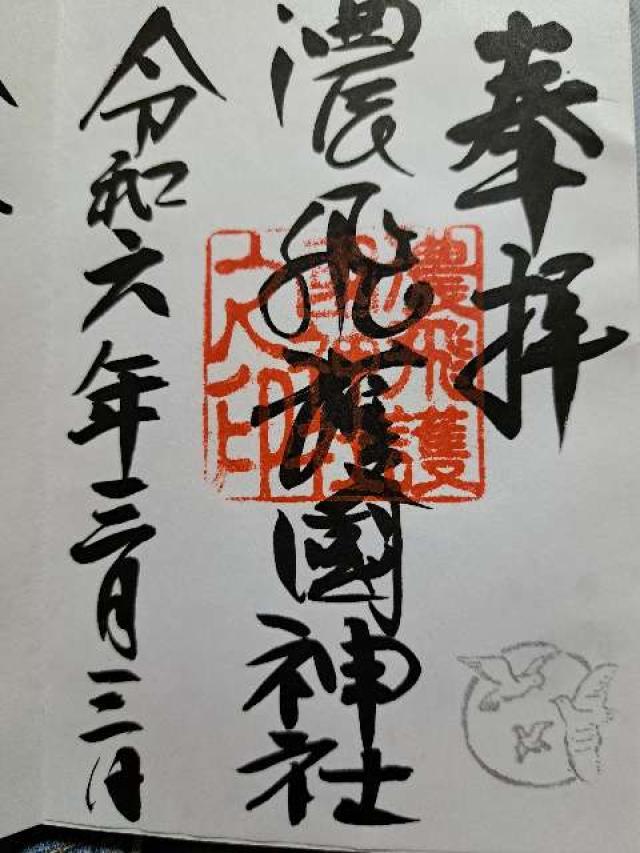 奉拝
濃飛護國神社
濃飛護
國神社
之印
令和六年三月三日